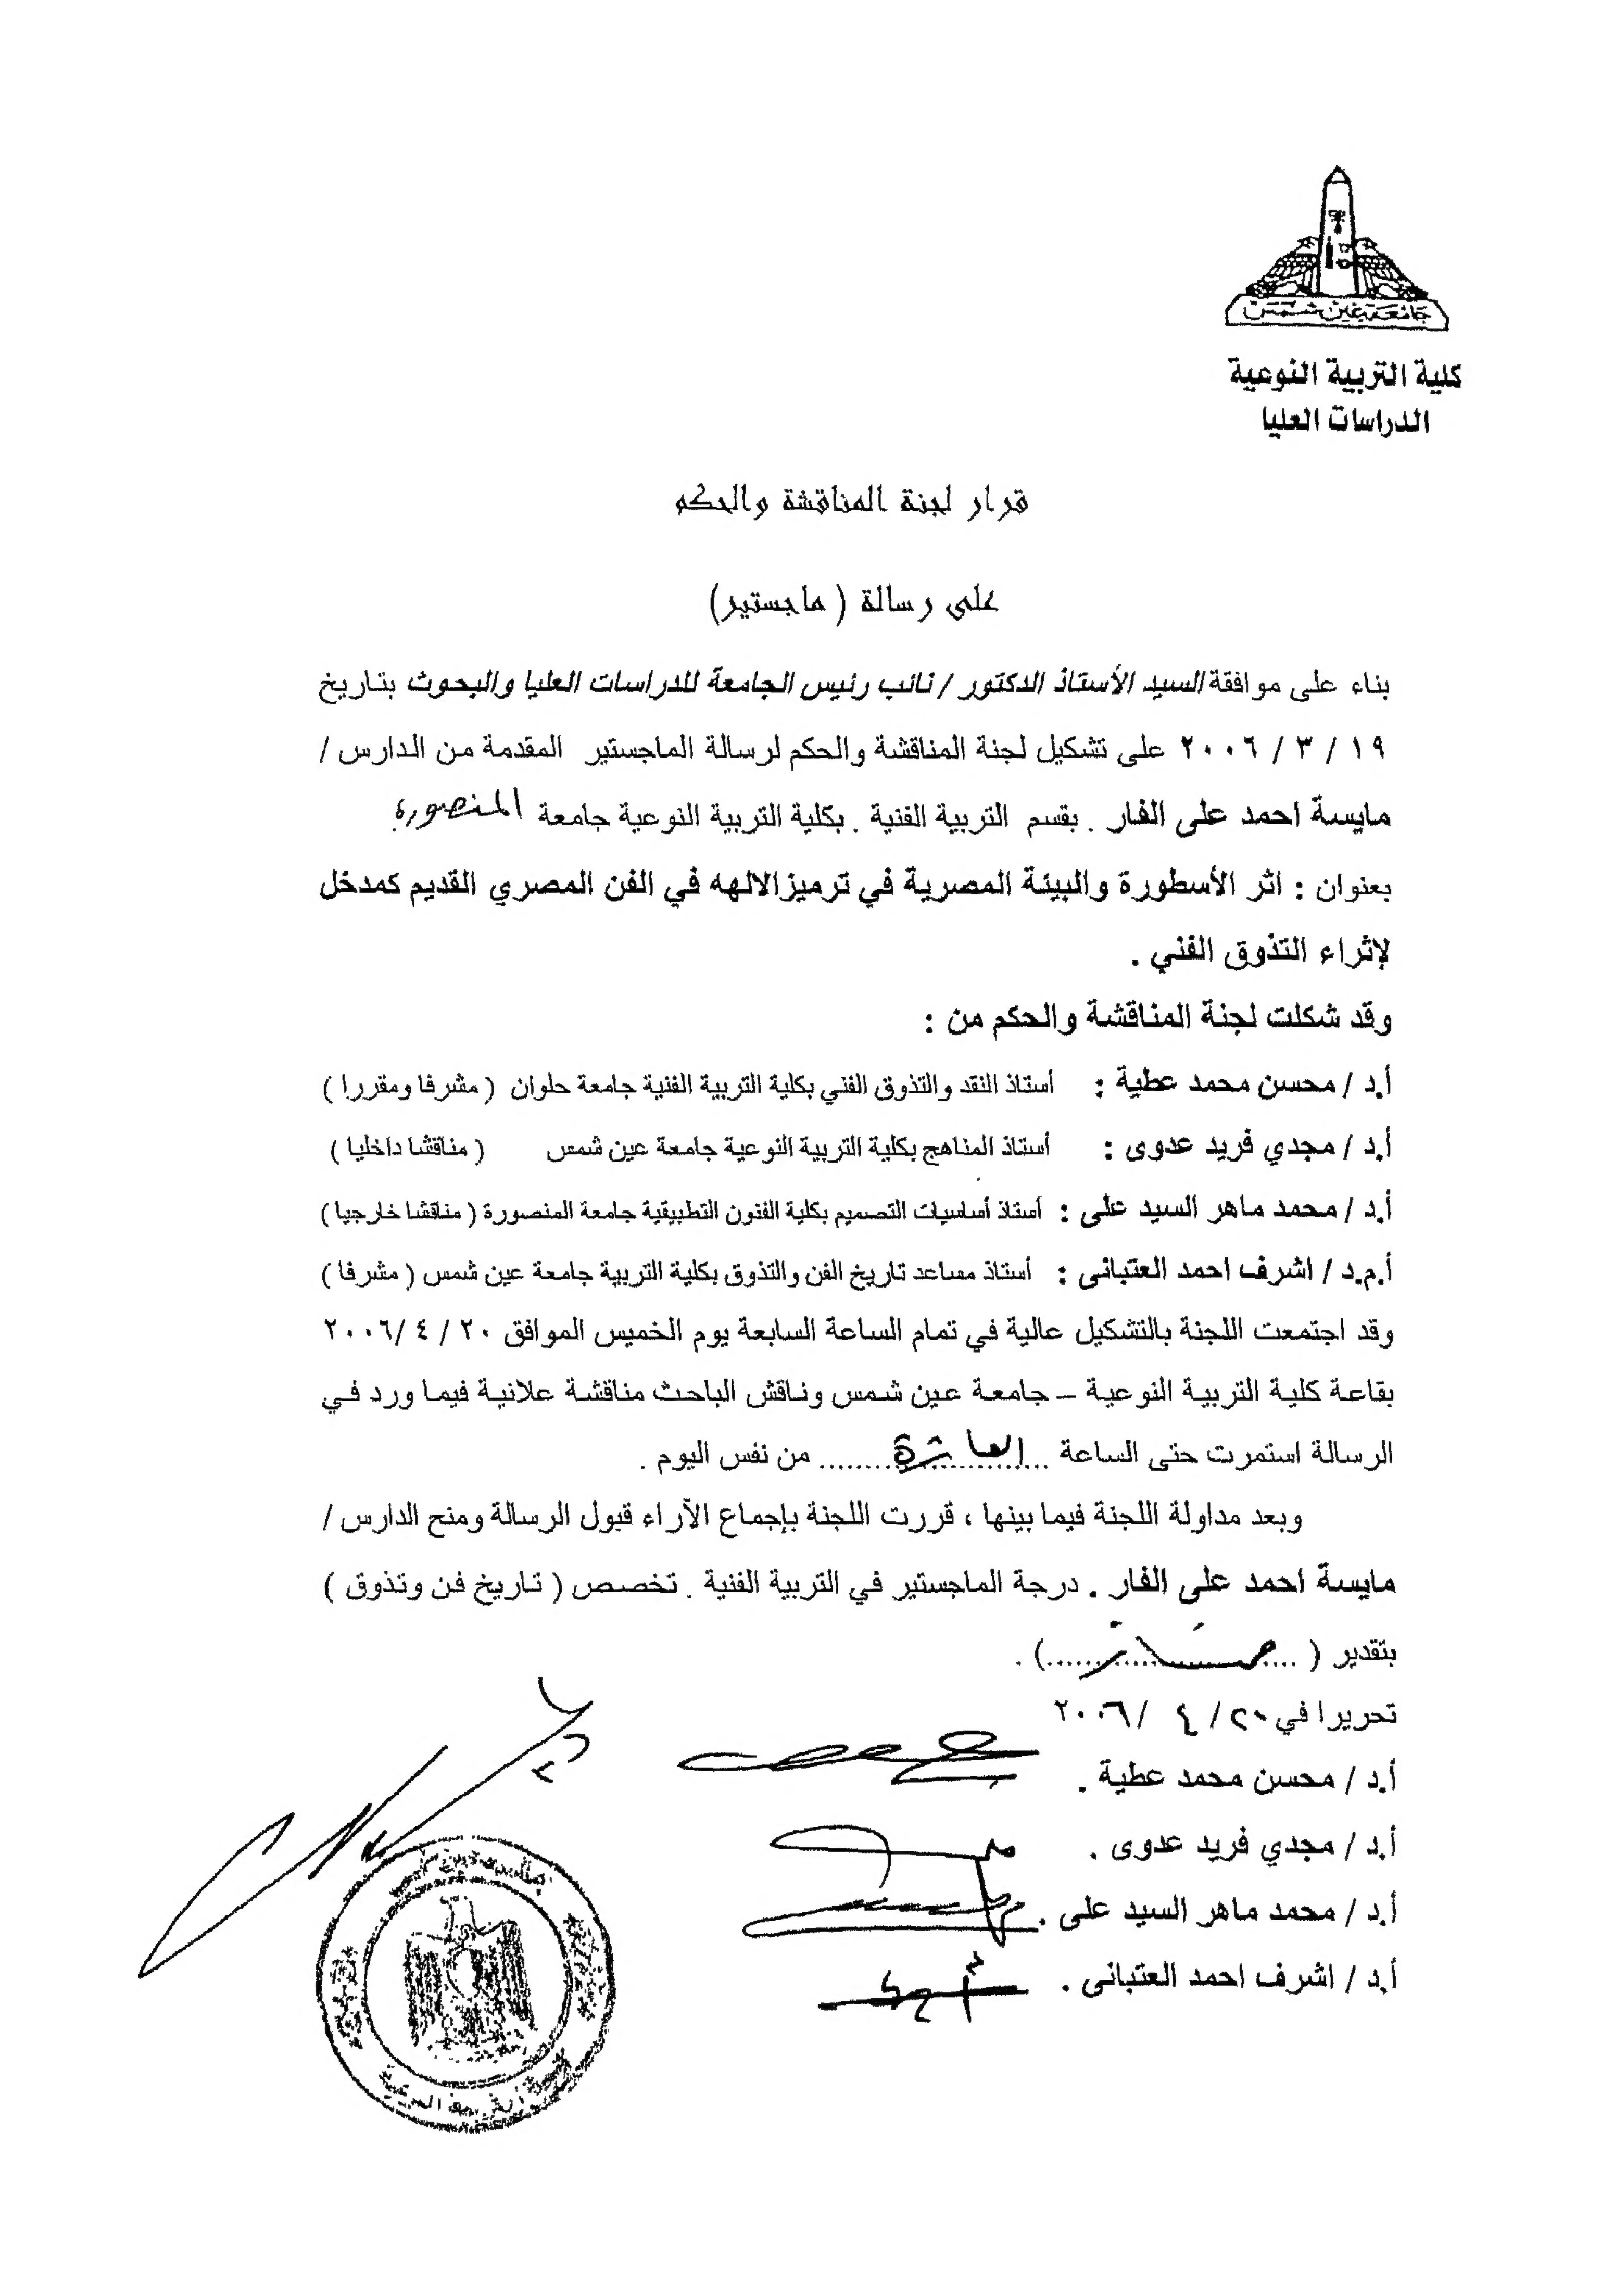 جامعة عين شمس
كلية التربية النوعية
الدراسات العليا
قرار لجنة المناقشة والحكم
على رسالة ( ماجستير)
بناء على موافقة السيد الأستاذ الدكتور / نائب رئيس الجامعة للدراسات العليا والبحوث بتاريخ
١٩ / ٣ / ٢٠٠٦ على تشكيل لجنة المناقشة والحكم لرسالة الماجستير المقدمة من الدارس /
مايسة احمد على الفار . بقسم التربية الفنية . بكلية التربية النوعية جامعة المنصورة
بعنوان : اثر الأسطورة والبيئة المصرية في ترميزالالهه في الفن المصري القديم كمدخل
لإثراء التذوق الفني .
وقد شكلت لجنة المناقشة والحكم من :
أ.د / محسن محمد عطية : أستاذ النقد والتذوق الفني بكلية التربية الفنية جامعة حلوان ( مشرفا ومقررا )
أ.د / مجدي فريد عدوى : أستاذ المناهج بكلية التربية النوعية جامعة عين شمس ( مناقشا داخليا )
أ.د / محمد ماهر السيد على : أستاذ أساسيات التصميم بكلية الفنون التطبيقية جامعة المنصورة ( مناقشا خارجيا )
أ.م.د / اشرف احمد العتبانى : أستاذ مساعد تاريخ الفن والتذوق بكلية التربية جامعة عين شمس ( مشرفا )
وقد اجتمعت اللجنة بالتشكيل عالية في تمام الساعة السابعة يوم الخميس الموافق ٢٠ / ٤ /٢٠٠٦
بقاعة كلية التربية النوعية – جامعة عين شمس وناقش الباحث مناقشة علانية فيما ورد في
الرسالة استمرت حتى الساعة العاشرة من نفس اليوم .
وبعد مداولة اللجنة فيما بينها ، قررت اللجنة بإجماع الآراء قبول الرسالة ومنح الدارس /
مايسة احمد على الفار . درجة الماجستير في التربية الفنية . تخصص ( تاريخ فن وتذوق )
بتقدير ( ممتاز ) .
تحريرا في ٢٠ / ٤ / ٢٠٠٦
أ.د / محسن محمد عطية .
أ.د / مجدي فريد عدوى .
أ.د / محمد ماهر السيد على .
أ.د / اشرف احمد العتبانى .